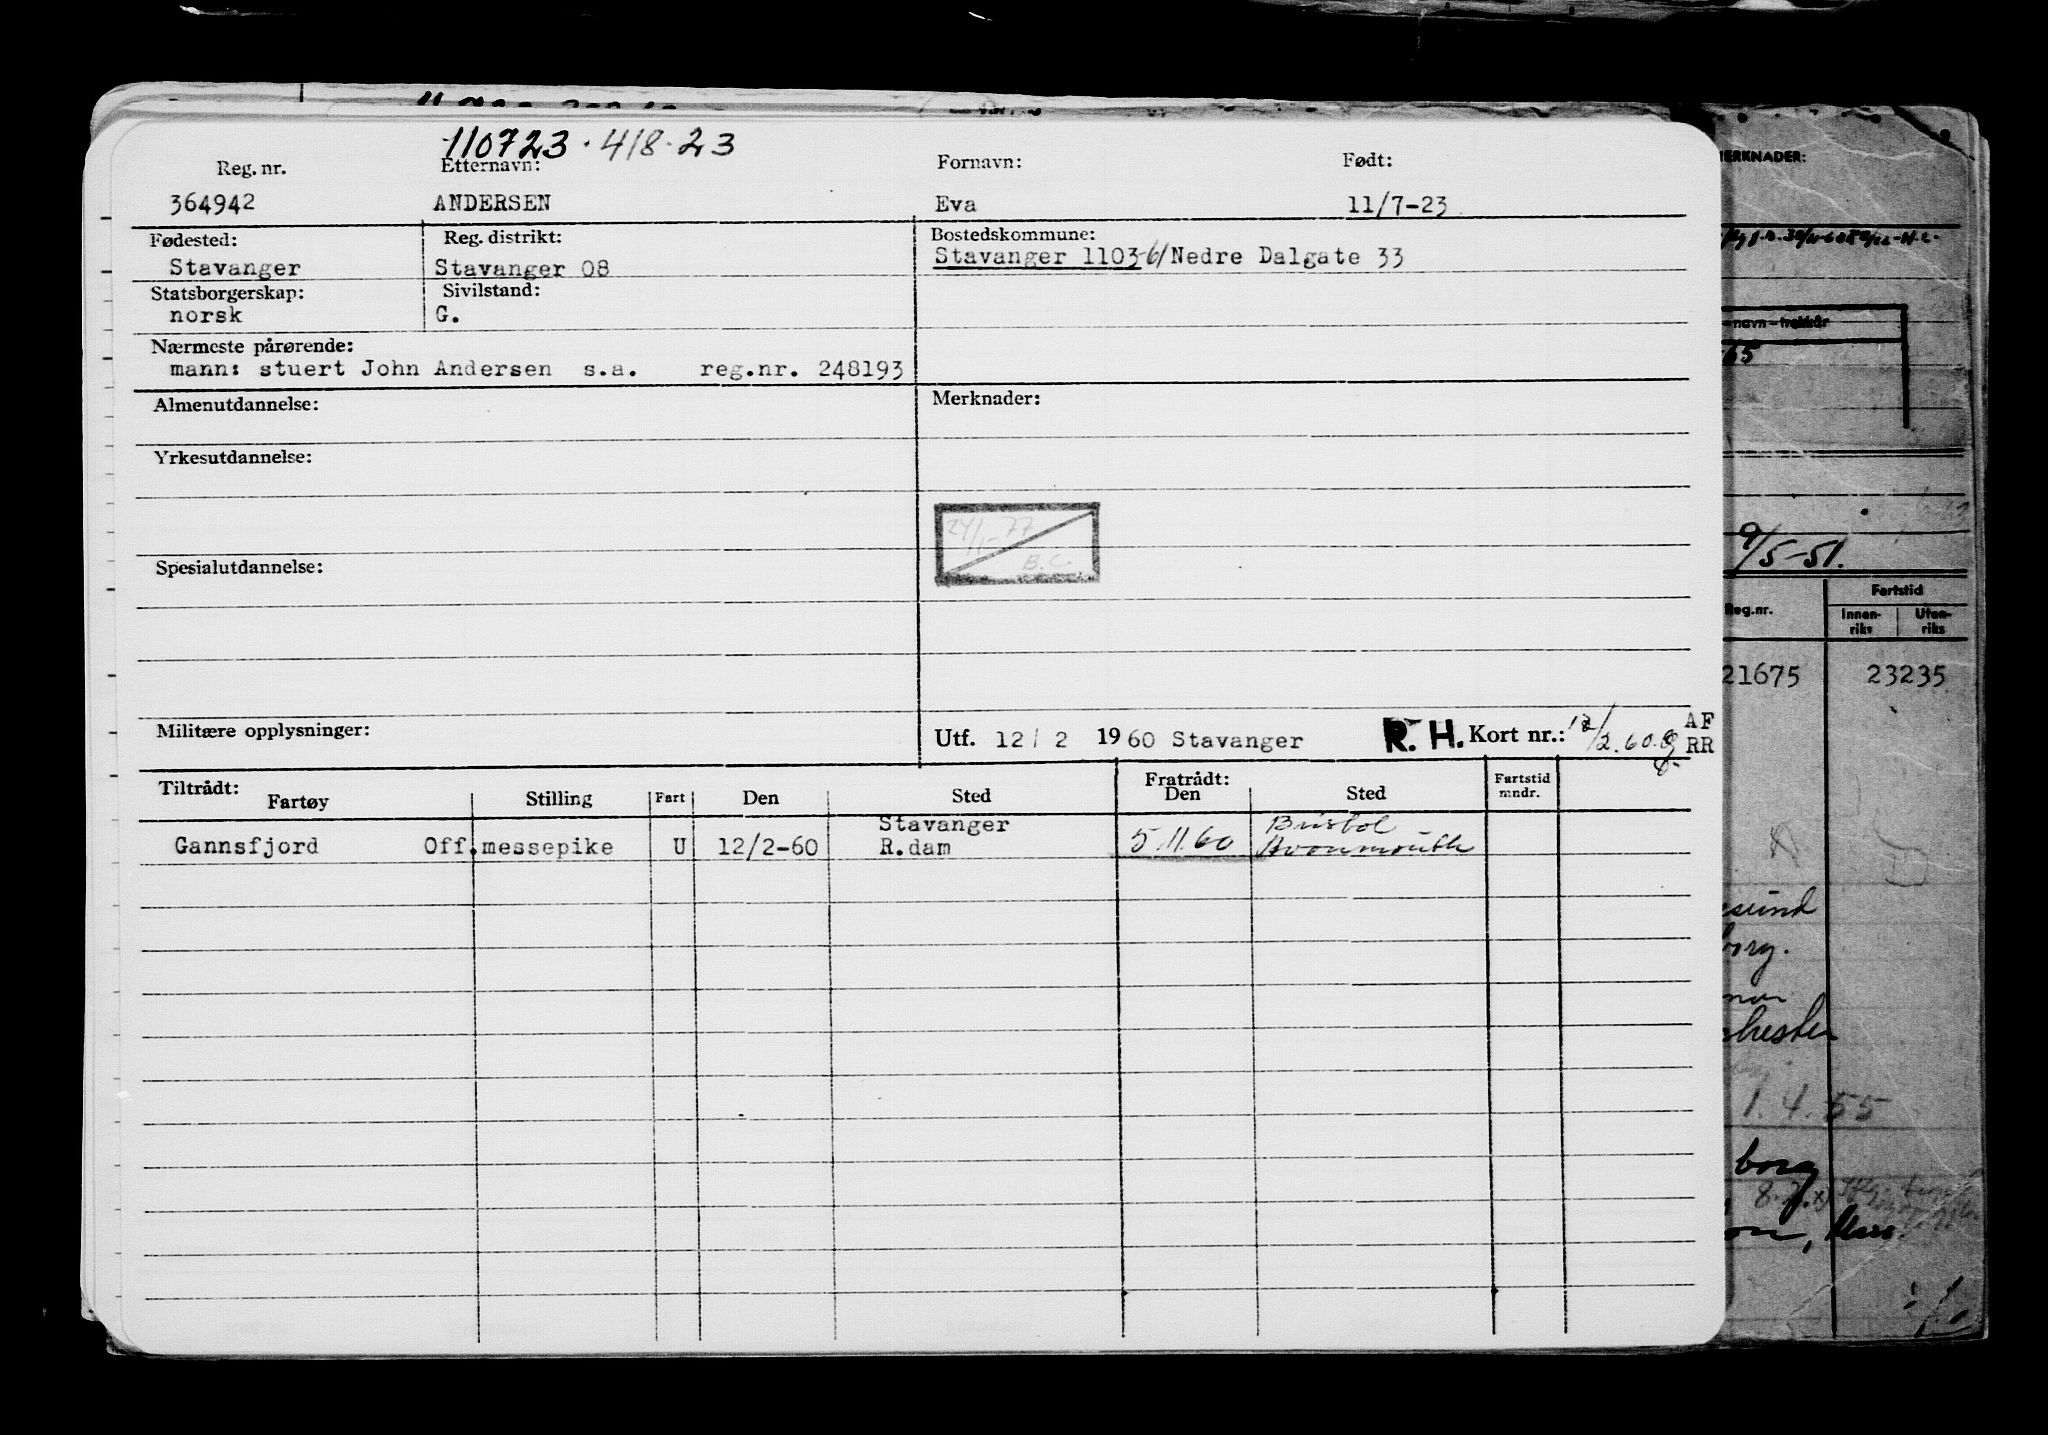 110723 · 418 · 23
Reg. nr. Etternavn: Fornavn: Født:
364942 ANDERSEN Eva 11/7-23
Fødested: Reg. distrikt: Bostedskommune:
Stavanger Stavanger 08 Stavanger 1103-61/Nedre Dalgate 33
Statsborgerskap: Sivilstand:
norsk G.
Nærmeste pårørende:
mann: stuert John Andersen s.a. reg.nr. 248193
Almenutdannelse: Merknader:
Yrkesutdannelse:
24/1-77
B.C.
Spesialutdannelse:
Militære opplysninger: Utf. 12/ 2 1960 Stavanger R. H. Kort nr.: 12/2.60. AF
RR
Tiltrådt: Fratrådt:
Fartøy Stilling Fart Den Sted Den Sted Fartstid mndr.
Stavanger Bristol
Gannsfjord Off.messepike U 12/2-60 R.dam 5.11.60 Avonmouth
MERKNADER:
-navn-trekkår
65
9/5-51.
Reg.nr. Fartstid
Innen-riks Uten-riks
21675 23235
esund
borg.
chester
1.4.55
borg
on, Mass.